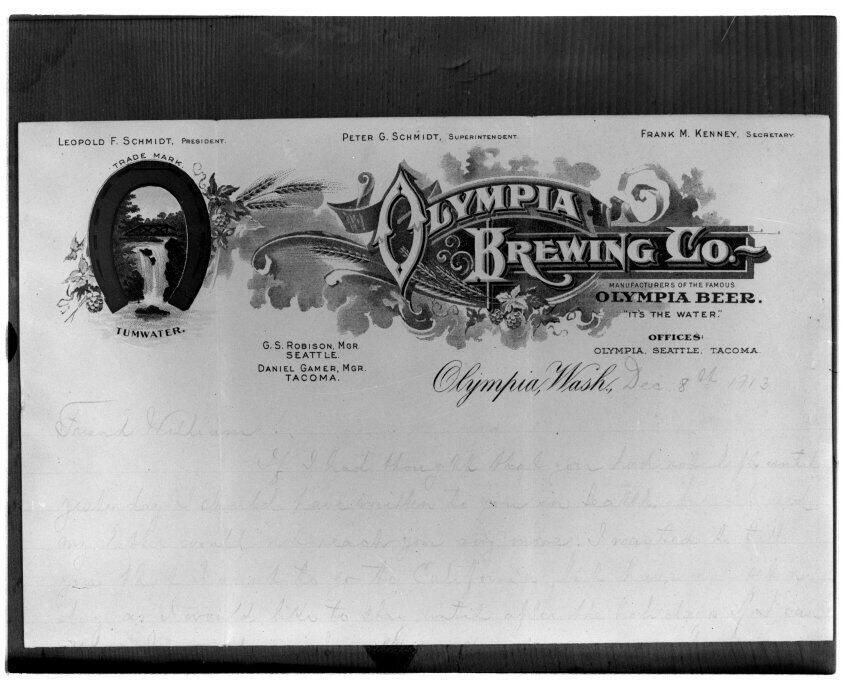 LEOPOLD F. SCHMIDT, PRESIDENT.
PETER G. SCHMIDT, SUPERINTENDENT.
FRANK M. KENNEY, SECRETARY.
TRADE MARK.
TUMWATER.
OLYMPIA
BREWING CO.
MANUFACTURERS OF THE FAMOUS
OLYMPIA BEER.
"IT'S THE WATER."
OFFICES:
OLYMPIA, SEATTLE, TACOMA.
G. S. ROBISON, MGR.
SEATTLE.
DANIEL GAMER, MGR.
TACOMA.
Olympia, Wash., Dec 8th 1913
Friend William
If I had thought that you had not left until
yesterday I should have written to you in Seattle
my letter would not reach you any more. I wanted to tell
you that I want to go to California, but
day as I would like to stay until after the holidays